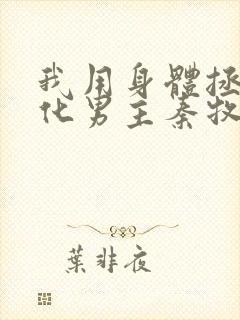 我用身體拯
化男主秦牧
葉非夜